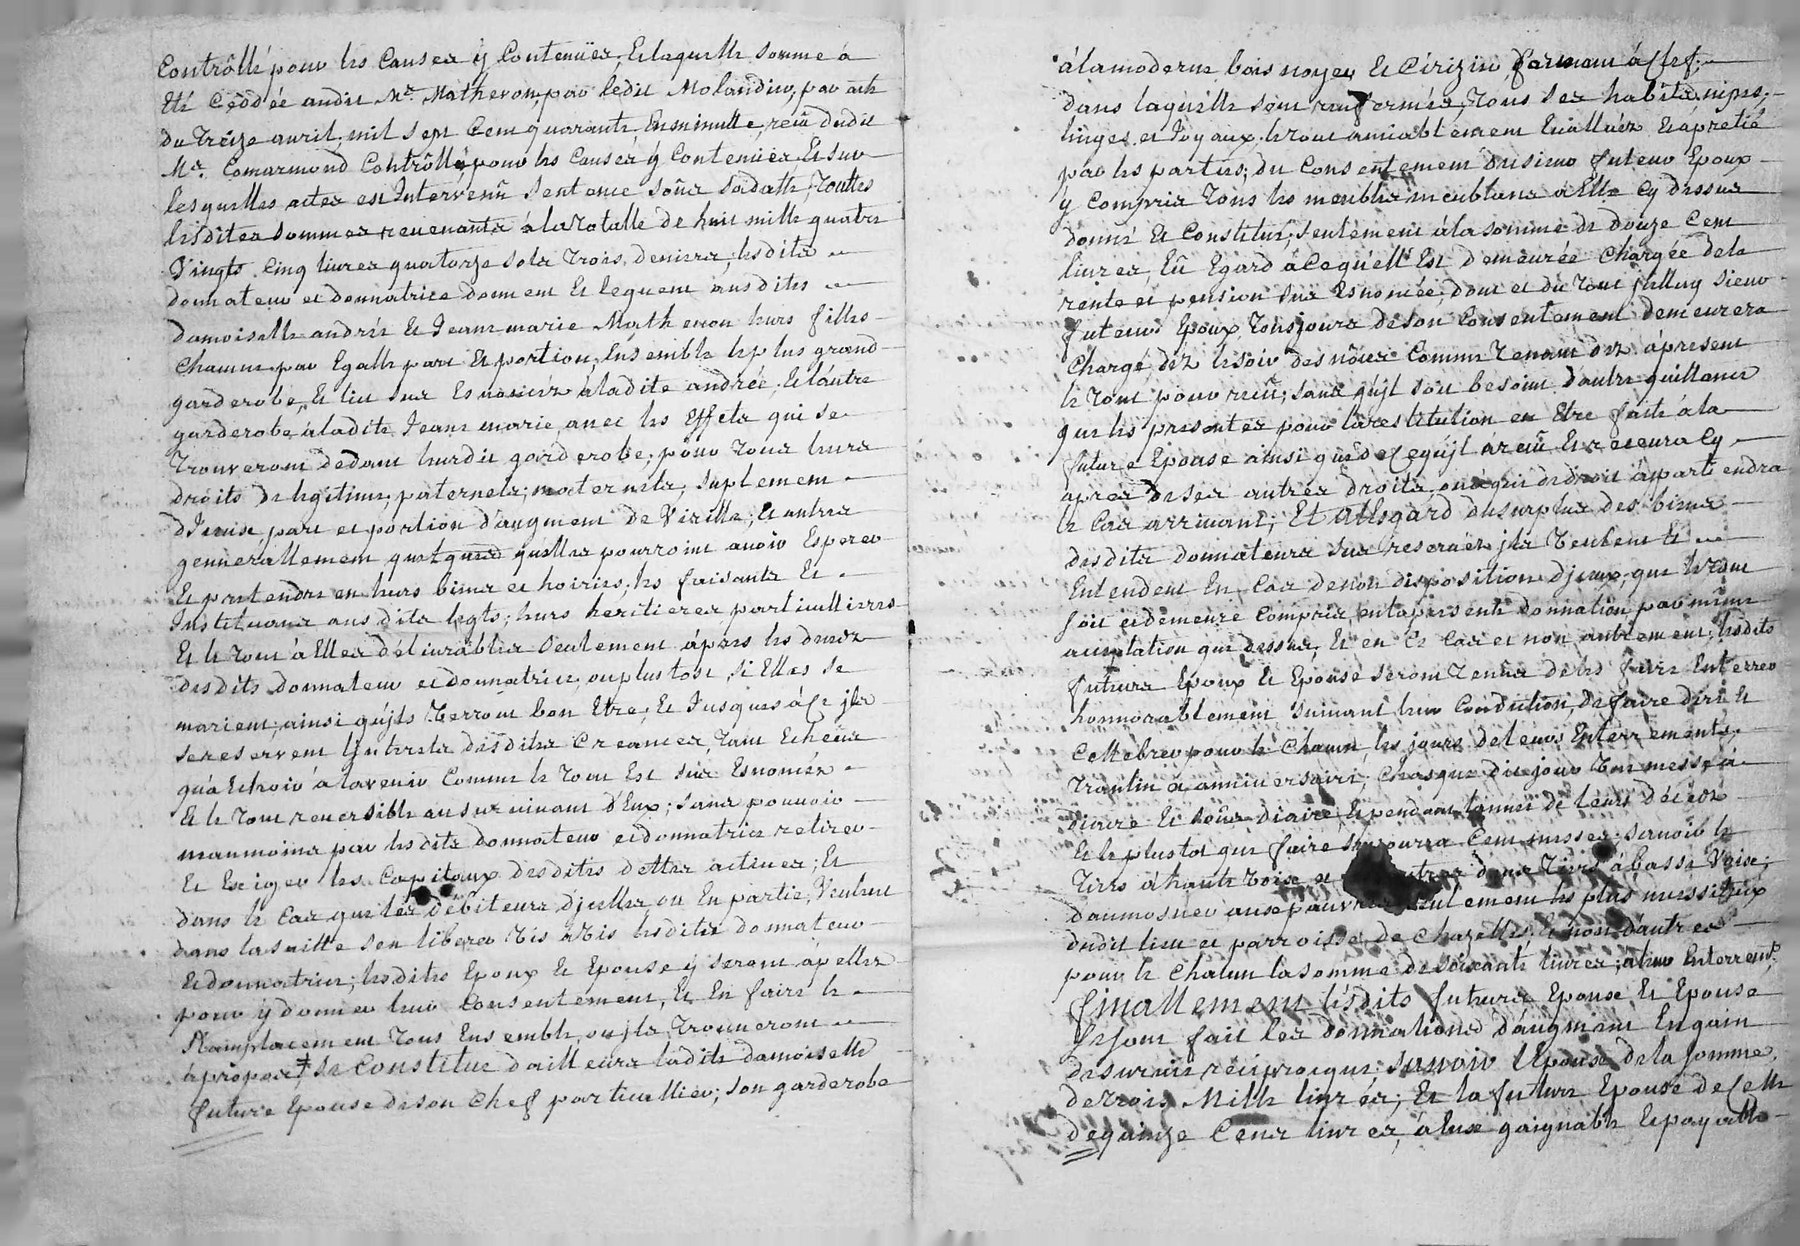 Contrôllé pour les Causes y Contenües, Et laquelle somme á
Eté Ceddée audit Mr. Matheron, par ledit Molandin, par acte
du treize auril, mil sept Cent quarante, En minutte, reçû dudit
Mr. Comarmond Contrôllé, pour les Causes y Contenües Et sur
lesquelles actes est Intervenû Sentence soûs sadatte, Touttes
lesdites sommes reuenants á la totalle de huit mille quatre
Vingts Cinq liures quatorze sols trois deniers, lesdits
donnateur et donnatrice donnent Et leguent ausdites
damoiselle andrée Et Jeanne marie Matheron leurs filles
Chacune par Egalle part Et portion, Ensemble le plus grand
garderobe, Et lit sus Enoncéz àladite andrée, Et l'áutre
garderobe àladite Jeanne marie auec les Effets qui se
trouveront dedant leurdit garderobe; pour tous leurs
droits de legitime, paternels, maternels, suplement
d'Jcuise, part et portion d'augment de Virille; Et autres
generallement quelquesd quelles pourroint auoir Esperer
Et pretendre en leurs biens et hoiries; les faisants Et
Instituans ausdits legts; leurs heritieres particullieres
Et le tout à Elles délivrables seulement ápres les deces
desdits donnateur et donnatrice, ou plustost si Elles se
marient, ainsi qu'jls Verront bon Etre, Et Jusques á Ce jls
se reservent lintrests desdites Creances, tant Echeüs
qu'à Echoir à lavenir Comme le tout Est sus Enoncéz
Et le tout reuersible au suruiuant d'Eux; sans pouuoir
neanmoins par lesdits donnateur et donnatrice retirer
Et Exiger les Capitaux desdites dettes actiues; Et
dans le Cas que les débiteurs d'jcelles, ou En partie, Veulent
dans la suitte sen liberer Vis àVis lesdits donnateur
Et donnatrice; lesdits Epoux Et Epouse y seront apellés
pour y donner leur Consentement, Et En faire le
Ramplacement tous Ensemble, ou jls trouueront
àpropos # Se Constitue d'ailleurs ladite damoiselle
future Epouse de son Chef particullier; son garderobe
álamoderne bois noyer Et Cirizier, farmant á Clef,
dans laquelle sont renfermés, tous ses habits, nipes,
linges, et Joyaux, le tout amiablement Euälluéz Et apretié
par les parties; du Consentement dusieur futeur Epoux
y Compris tous les meubles meublans à Elle Cy dessus
donné Et Constitué, seulement à la somme de douze Cent
liures, Eû Egard áCequ'ell' Est demeurée Chargée dela
rente et pension sus Enoncée, dont et du tout jcelluy sieur
futeur Epoux, tousjours deson Consentement demeurera
Chargé déz le soir des nôces Comme tenant déz ápresent
le tout pour reçû; sans qu'jl soit besoint d'autre quittance
que les presentes pour la restitution en Etre faite á la
future Epouse ainsi que de Cequ'jl à reçû Et receura Cy
aprés de ses autres droits, ou á qui de droit apartiendra
le Cas arriuant; Et á l'Esgard du surplus des biens
desdits donnateurs sus reseruéz, jls Veulent Et
Entendent En Cas de non disposition d'jceux, que le tout
soit et demeure Compris, en la presente donnation, par même
acceptation que dessus, Et en Ce Cas et non autrement, lesdits
futurs Epoux Et Epouse seront tenûs de les faire Enterrer
honnorablement, suiuant leur Condition, de faire dire Et
Cellebrer pour le Chacun, les jours de leurs Enterrements,
trantin & anniversaire; Chasque dit jour Une messe á
diacre Et soûs diacre, Et pendant l'année de leurs décéz
Et le plustot que faire se poura Cent messes; sauoir le
tiers á haute Voix, et les autres deux tiers á basse Voix;
d'aumosner aux pauures seulement les plus nessiteux
dudit lieu et parroisse de Chazelles, Et non d'autres
pour le Chacun la somme de soixante liures, á leur Enterremt.
Finallement lesdits futurs Epoux Et Epouse
se sont fait les donnations d'augment En gain
de suruie réciproque; sauoir l'Epoux de la somme
de trois Mille liures; Et la future Epouse de Celle
de quinze Cens liures, á Eux gaignable Et payable